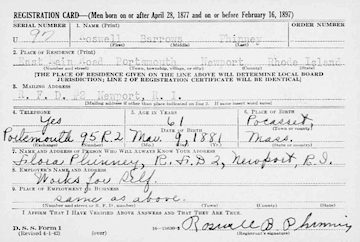 REGISTRATION CARD—(Men born on or after April 28, 1877 and on or before February 16, 1897)
SERIAL NUMBER 1. NAME (Print) ORDER NUMBER
U 97 Roswell Barrows Phinney
(First) (Middle) (Last)
2. PLACE OF RESIDENCE (Print)
East Main Road Portsmouth Newport Rhode Island
(Number and street) (Town, township, village, or city) (County) (State)
[THE PLACE OF RESIDENCE GIVEN ON THE LINE ABOVE WILL DETERMINE LOCAL BOARD
JURISDICTION; LINE 2 OF REGISTRATION CERTIFICATE WILL BE IDENTICAL]
3. MAILING ADDRESS
R.F.D. #2 Newport, R. I.
[Mailing address if other than place indicated on line 2. If same insert word same]
4. TELEPHONE 5. AGE IN YEARS 6. PLACE OF BIRTH
Yes 61 Pocasset
DATE OF BIRTH (Town or county)
Portsmouth 95 R.2 Mar. 9, 1881 Mass.
(Exchange) (Number) (Mo.) (Day) (Yr.) (State or country)
7. NAME AND ADDRESS OF PERSON WHO WILL ALWAYS KNOW YOUR ADDRESS
Flora Phinney, R.F.D 2, Newport, R.I.
8. EMPLOYER'S NAME AND ADDRESS
Works for Self.
9. PLACE OF EMPLOYMENT OR BUSINESS
same as above.
(Number and street or R. F. D. number) (Town) (County) (State)
I AFFIRM THAT I HAVE VERIFIED ABOVE ANSWERS AND THAT THEY ARE TRUE.
D. S. S. Form 1
(Revised 4-1-42) (over) Roswell B. Phinney
(Registrant's signature)